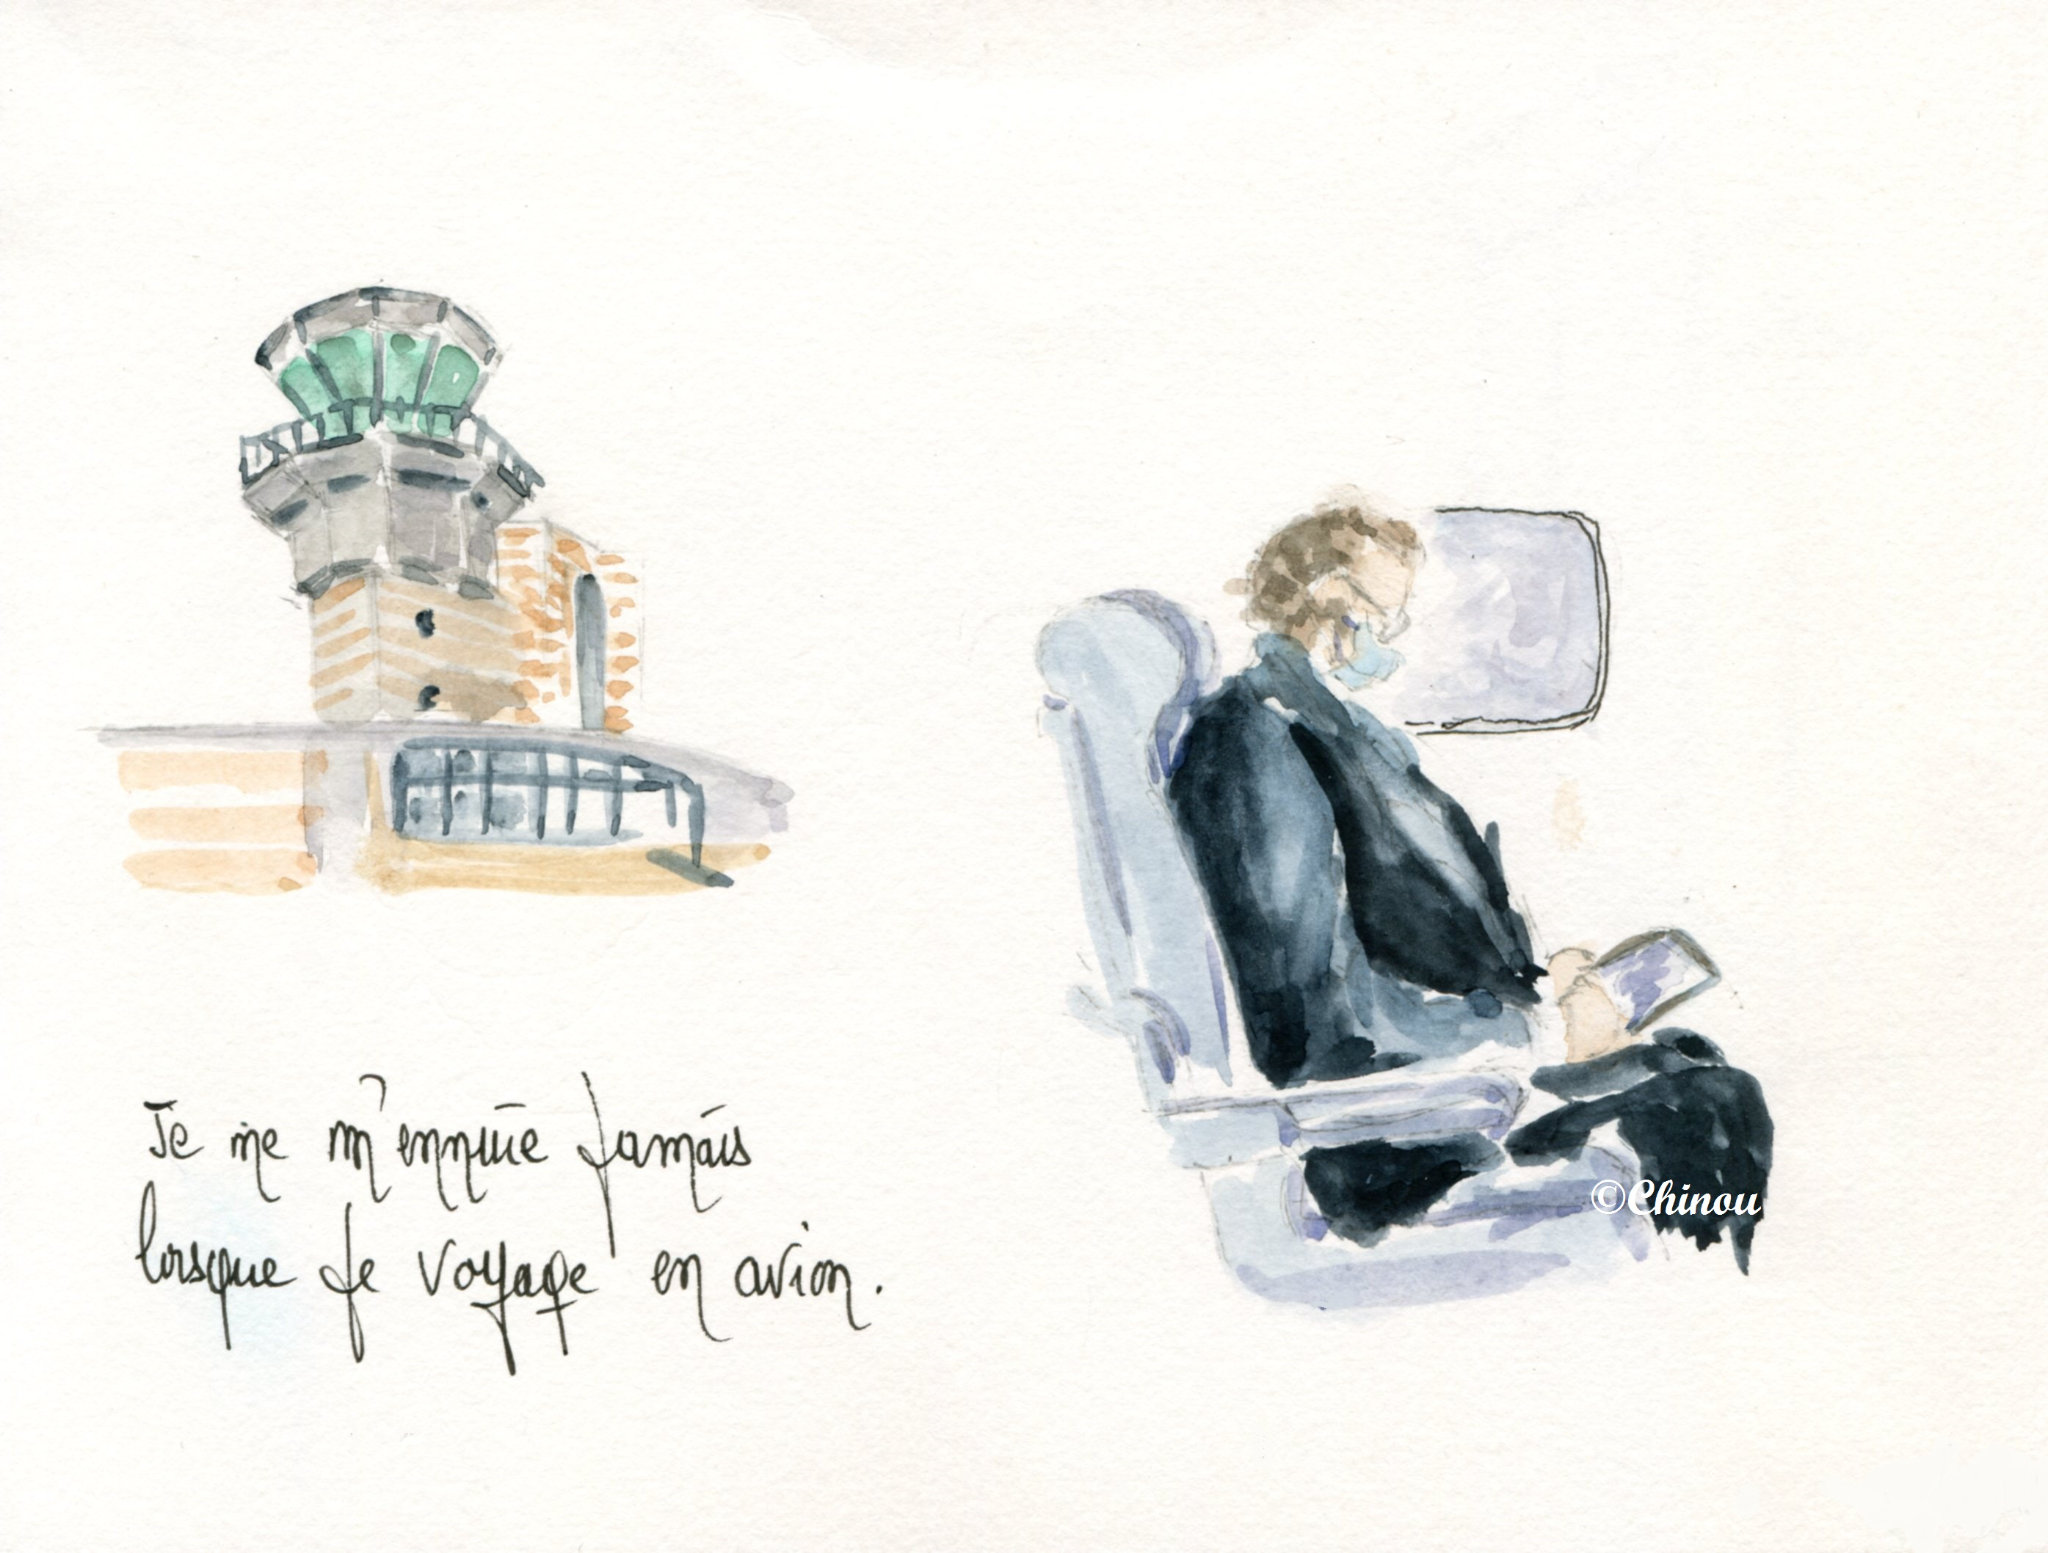 Je ne m'ennuie jamais
lorsque je voyage en avion.
©Chinou